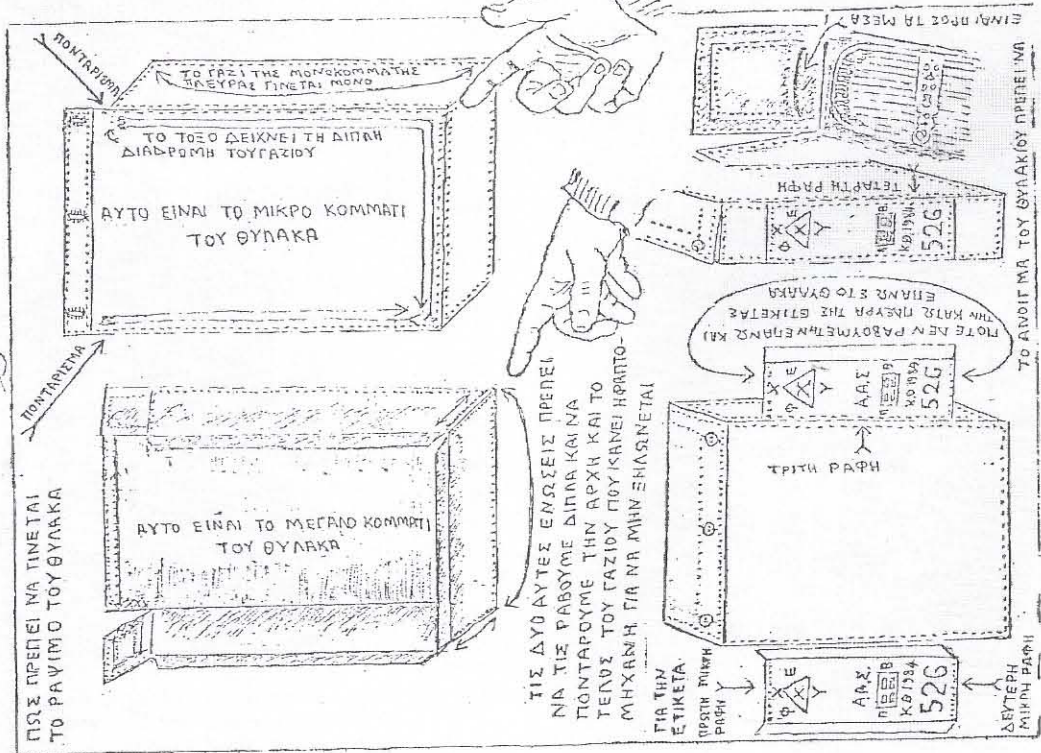 ΠΩΣ ΠΡΕΠΕΙ ΝΑ ΓΙΝΕΤΑΙ
ΤΟ ΡΑΨΙΜΟ ΤΟΥ ΘΥΛΑΚΑ
ΠΟΝΤΑΡΙΣΜΑ
ΤΟ ΓΑΖΙ ΤΗΣ ΜΟΝΟΚΟΜΜΑΤΗΣ
ΠΛΕΥΡΑΣ ΓΙΝΕΤΑΙ ΜΟΝΟ
ΤΟ ΤΟΞΟ ΔΕΙΧΝΕΙ ΤΗ ΔΙΠΛΗ
ΔΙΑΔΡΟΜΗ ΤΟΥ ΓΑΖΙΟΥ
ΑΥΤΟ ΕΙΝΑΙ ΤΟ ΜΙΚΡΟ ΚΟΜΜΑΤΙ
ΤΟΥ ΘΥΛΑΚΑ
ΠΟΝΤΑΡΙΣΜΑ
ΑΥΤΟ ΕΙΝΑΙ ΤΟ ΜΕΓΑΛΟ ΚΟΜΜΑΤΙ
ΤΟΥ ΘΥΛΑΚΑ
ΤΙΣ ΔΥΟ ΑΥΤΕΣ ΕΝΩΣΕΙΣ ΠΡΕΠΕΙ
ΝΑ ΤΙΣ ΡΑΒΟΥΜΕ ΔΙΠΛΑ ΚΑΙ ΝΑ
ΠΟΝΤΑΡΟΥΜΕ ΤΗΝ ΑΡΧΗ ΚΑΙ ΤΟ
ΤΕΛΟΣ ΤΟΥ ΓΑΖΙΟΥ ΠΟΥ ΚΑΝΕΙ Η ΡΑΠΤΟ-
ΜΗΧΑΝΗ ΓΙΑ ΝΑ ΜΗΝ ΞΗΛΩΝΕΤΑΙ
ΓΙΑ ΤΗΝ
ΕΤΙΚΕΤΑ
ΠΡΩΤΗ ΜΙΚΡΗ
ΡΑΦΗ
Φ Χ Ε
Χ
Υ
Α.Α.Σ.
Π Β
ΚΘ 1984
526
ΔΕΥΤΕΡΗ
ΜΙΚΡΗ ΡΑΦΗ
ΤΡΙΤΗ ΡΑΦΗ
Φ Χ Ε
Χ
Υ
Α.Α.Σ
Π Β
ΚΘ 1984
526
ΠΟΤΕ ΔΕΝ ΡΑΒΟΥΜΕ ΤΗΝ ΕΠΑΝΩ ΚΑΙ
ΤΗΝ ΚΑΤΩ ΠΛΕΥΡΑ ΤΗΣ ΕΤΙΚΕΤΑΣ
ΕΠΑΝΩ ΣΤΟ ΘΥΛΑΚΑ
ΤΕΤΑΡΤΗ ΡΑΦΗ
Φ Χ Ε
Χ
Υ
Π Β
ΚΘ 1984
526
ΤΟ ΑΝΟΙΓΜΑ ΤΟΥ ΘΥΛΑΚΙΟΥ ΠΡΕΠΕΙ ΝΑ
ΕΙΝΑΙ ΠΡΟΣ ΤΑ ΜΕΣΑ!